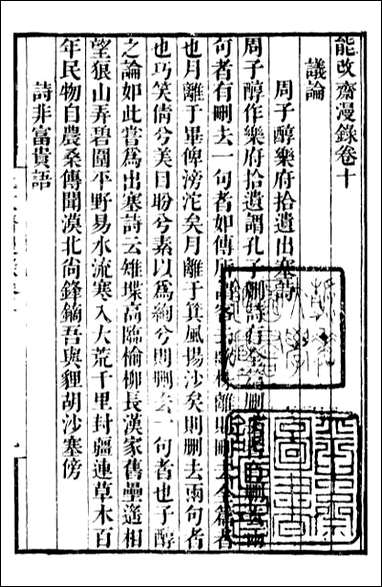 能改齋漫錄卷十
議論
周子醇樂府拾遺出塞詩
周子醇作樂府拾遺謂孔子刪詩有全篇刪
句者有刪去一句者如
也月離于畢俾滂沱矣月離于箕風揚沙矣則刪去兩句者
也巧笑倩兮美目盼兮素以為絢兮則刪去一句者也子醇
之論如此嘗為出塞詩云雉堞高臨榆柳長漢家舊壘遙相
望狼山弄碧圍平野易水流寒入大荒千里封疆連草木百
年民物自農桑傳聞漠北尙鋒鏑吾與貍胡沙塞傍
詩非富貴語